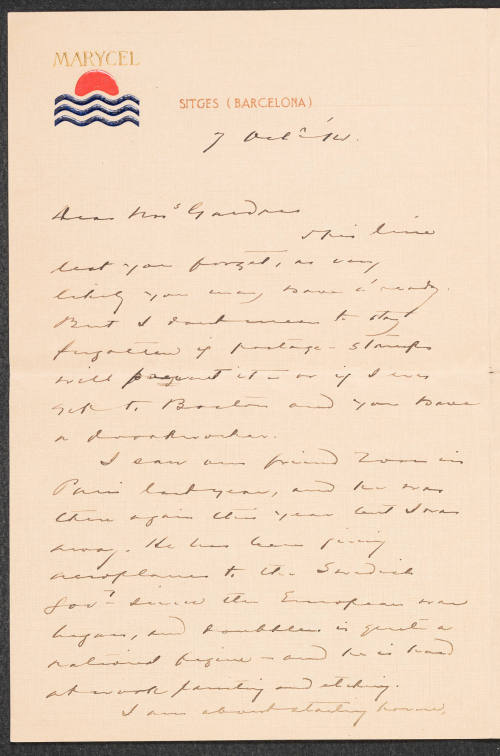 MARYCEL
SITGES (BARCELONA)
7 Octr '14.
Dear Mrs Gardner
This line
lest you forget, as very
likely you may have a'ready.
But I don't mean to stay
forgotten if postage-stamps
will prevent it - or if I ever
get to Boston and you have
a doorknocker.
I saw our friend Zorn in
Paris last year, and he was
there again this year but I was
away. He has been giving
aeroplanes to the Swedish
Govt since the European war
began, and doubtless is quite a
national figure - and he is hard
at work painting and etching.
I am about starting home,